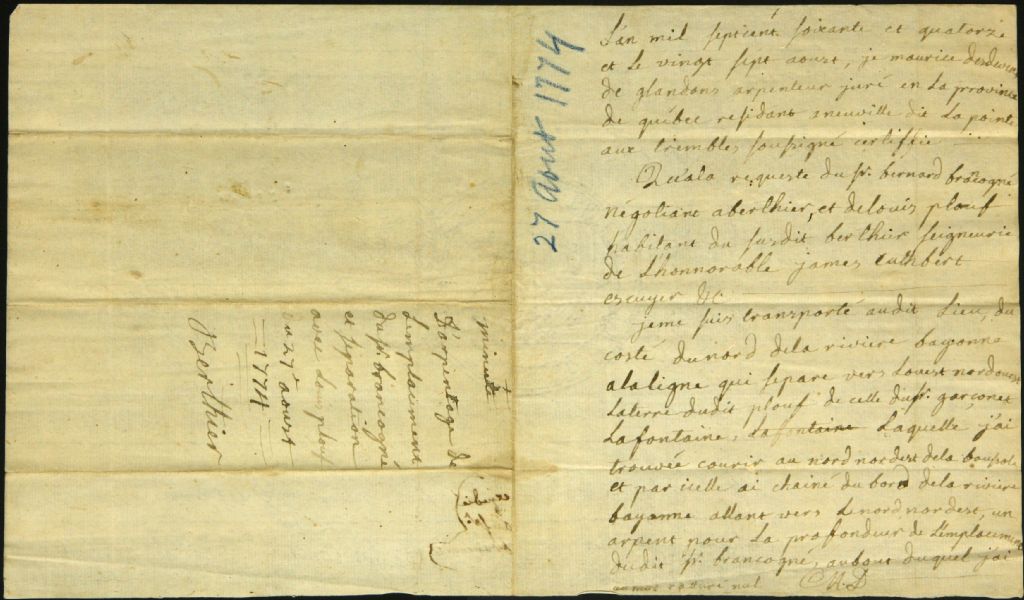 27 Aout 1774
minute
D'arpentage de
L'emplacement
du sr. brancogné
et separation
avec Louis plouf
du 27 aoust
1774
Berthier
L'an mil septcent soixante et quatorze
et Le vingt sept aoust, je maurice
de glandons arpenteur juré en La province
de québec residant a neuville dit La pointe
aux trembles soussigné certiffie
Qu'ala requeste du sr. bernard brancogné
négotiant aberthier, et de louis plouf
habitant du susdit berthier seigneurie
de L'honnorable james Cuthbert
escuyer &c.
je me suis transporté audit Lieu, du
costé du nord dela riviere bayonne
alaligne qui separe vers L'ouest nordouest
Laterre dudit plouf de celle du sr. garçonet
Lafontaine, Lafontaine Laquelle j'ai
trouvée courir au nord nordest dela boussole
et par icelle ai chainé du bord dela riviere
bayonne allant vers Lenord nordest, un
arpent pour La profondeur de L'emplacement
dudit sr. brancogné, au bout duquel j'ai
un mot raturé nul M.D